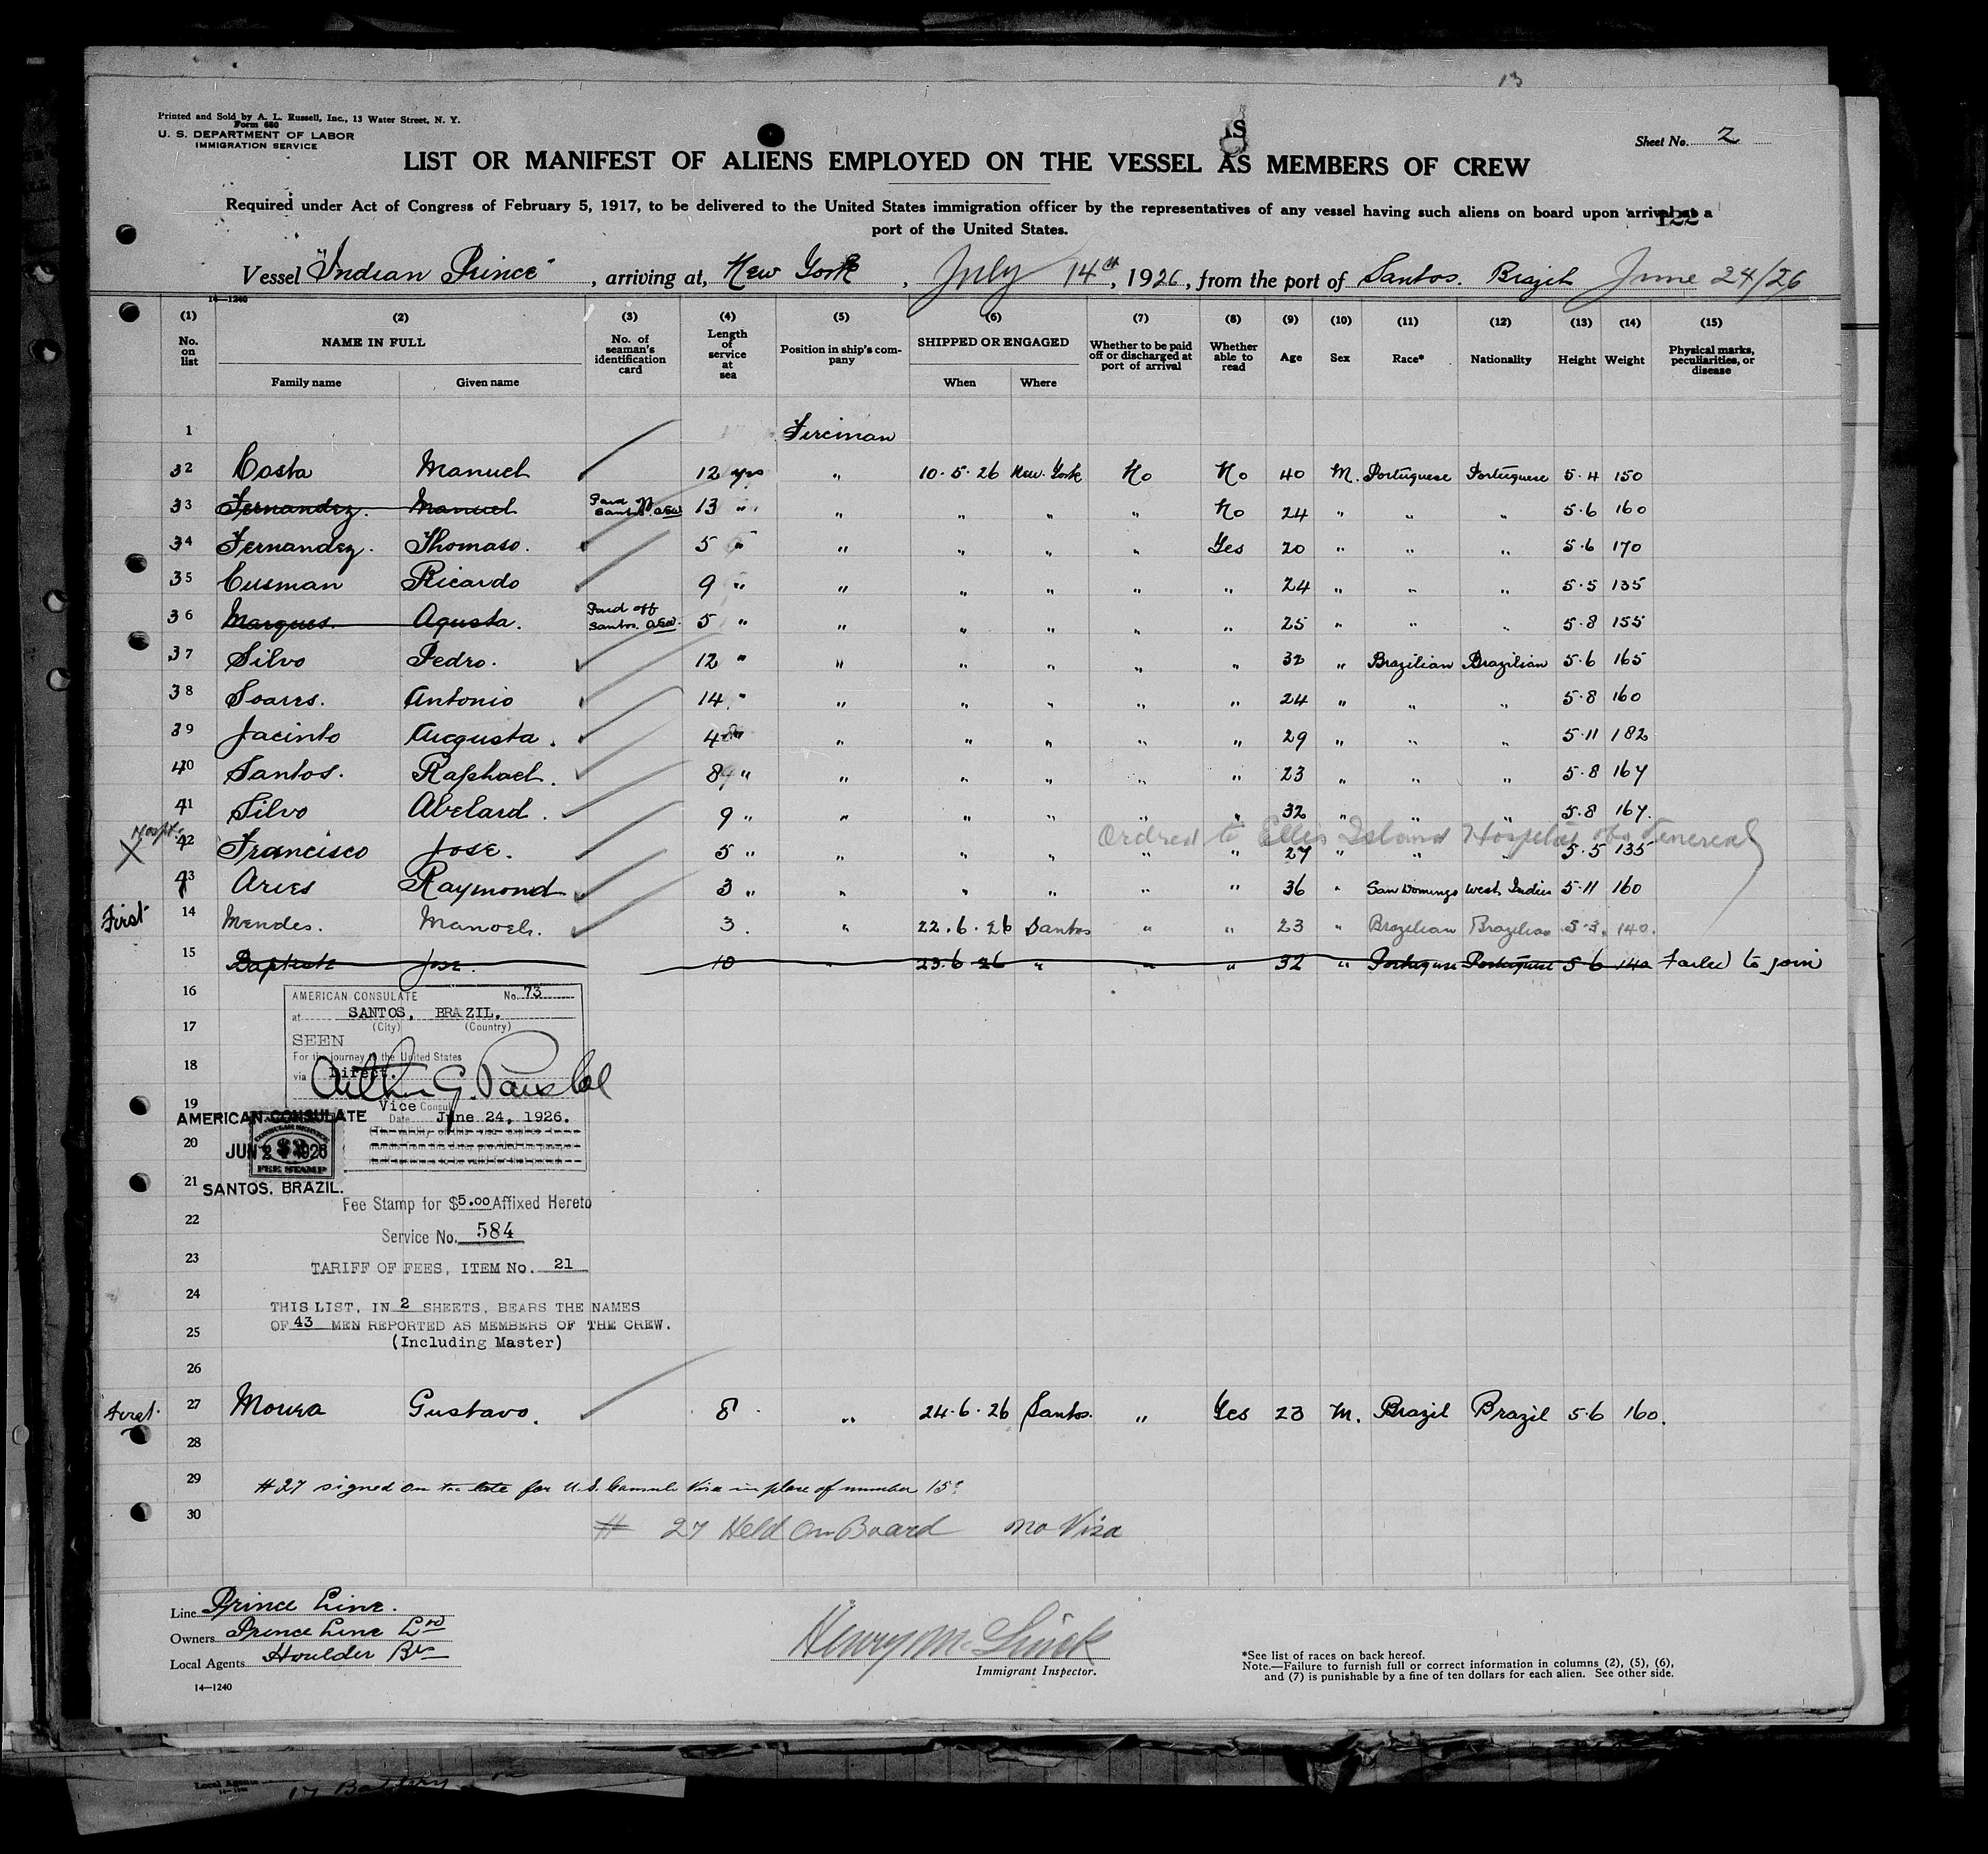 13
Printed and Sold by A. L. Russell, Inc., 13 Water Street, N. Y.
Form 680
U. S. DEPARTMENT OF LABOR
IMMIGRATION SERVICE
AS
Sheet No. 2
LIST OR MANIFEST OF ALIENS EMPLOYED ON THE VESSEL AS MEMBERS OF CREW
Required under Act of Congress of February 5, 1917, to be delivered to the United States immigration officer by the representatives of any vessel having such aliens on board upon arrival at a
port of the United States.
122
Vessel "Indian Prince", arriving at, New York, July 14th, 1926, from the port of Santos. Brazil June 24/26
14-1240
(1) (2) (3) (4) (5) (6) (7) (8) (9) (10) (11) (12) (13) (14) (15)
No. on list NAME IN FULL Family name Given name No. of seaman's identification card Length of service at sea Position in ship's company SHIPPED OR ENGAGED When Where Whether to be paid off or discharged at port of arrival Whether able to read Age Sex Race* Nationality Height Weight Physical marks, peculiarities, or disease
1 Fireman
32 Costa Manuel 12 yrs " 10.5.26 New York No No 40 M. Portuguese Portuguese 5.4 150
33 Fernandez. Manuel Paid off Santos. 13 " " " " " No 24 " " " 5.6 160
34 Fernandez. Thomaso. 5 " " " " " Yes 20 " " " 5.6 170
35 Cusman Ricardo 9 " " " " " " 24 " " " 5.5 135
36 Marques. Agusta. Paid off Santos. 5 " " " " " " 25 " " " 5.8 155
37 Silvo Pedro. 12 " " " " " " 32 " Brazilian Brazilian 5.6 165
38 Soares. Antonio 14 " " " " " " 24 " " " 5.8 160
39 Jacinto Augusta. 4 " " " " " " 29 " " " 5.11 182
40 Santos. Raphael. 8 " " " " " " 23 " " " 5.8 167
41 Silvo Abelard. 9 " " " " " " 32 " " " 5.8 167.
Ordred to Ellis Island Hospital Venereal
X Hospt. 42 Francisco Jose. 5 " " " " " " 27 " " " 5.5 135
43 Aries Raymond 3 " " " " " " 36 " San Domingo West Indies 5.11 160
First 14 Mendes. Manoel. 3. " 22.6.26 Santos " " 23 " Brazilian Brazilian 5.3. 140.
15 Baptista Jose. 10 " 23.6.26 " " " 32 " Portuguese Portuguese 5.6 140 Failed to join
16
AMERICAN CONSULATE No. 73
at SANTOS, BRAZIL.
17
(City) (Country)
SEEN
For the journey to the United States
18
via Direct.
19
Vice Consul
AMERICAN CONSULATE
Date June 24, 1926.
20
CONSULAR SERVICE
$2
JUN 24 1926
FEE STAMP
21
SANTOS, BRAZIL.
Fee Stamp for $5.00 Affixed Hereto
22
Service No. 584
23
TARIFF OF FEES, ITEM No. 21
24
THIS LIST, IN 2 SHEETS, BEARS THE NAMES
OF 43 MEN REPORTED AS MEMBERS OF THE CREW.
25
(Including Master)
26
First. 27 Moura Gustavo. 8 " 24.6.26 Santos. " Yes 23 M. Brazil Brazil 5.6 160.
28
29
#27 signed on too late for U.S. Consuls Visa in place of number 15.
30
# 27 Held On Board no Visa
Line Prince Line.
Owners Prince Line Ltd
Local Agents Houlder Bros
14—1240
Immigrant Inspector.
*See list of races on back hereof.
Note.—Failure to furnish full or correct information in columns (2), (5), (6),
and (7) is punishable by a fine of ten dollars for each alien. See other side.
Local Agents
17 Battery